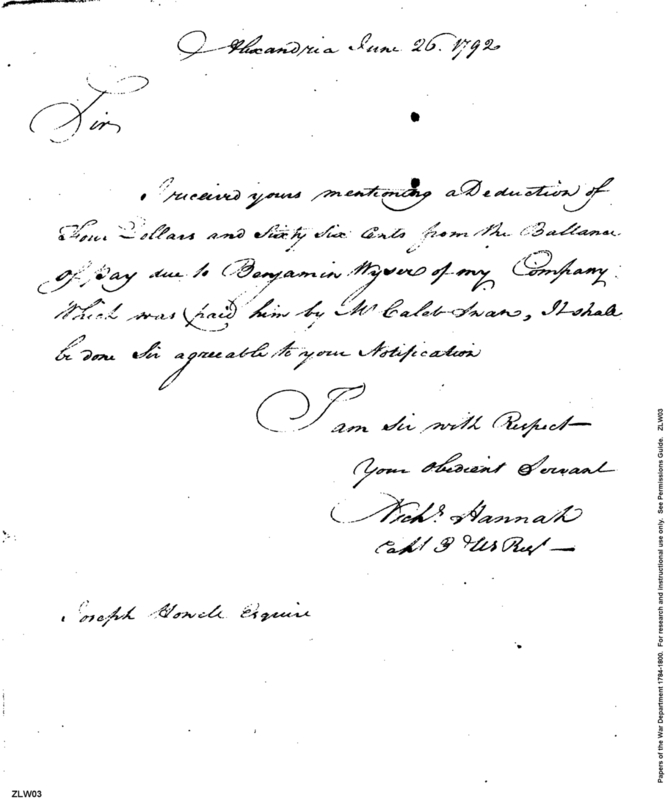 Alexandria June 26. 1792
Sir
I received yours mentioning a Deduction of
Four Dollars and Sixty Six Cents from the Ballance
of pay due to Benjamin Wyser of my Company
Which was paid him by Mr Caleb Swan, It shall
be done Sir agreeable to your Notification
I am Sir with Respect
Your Obedient Servant
Nichs. Hannah
Capt 3 US Regt
Joseph Howell Esquire
ZLW03
Papers of the War Department 1784-1800. For research and instructional use only. See Permissions Guide. ZLW03